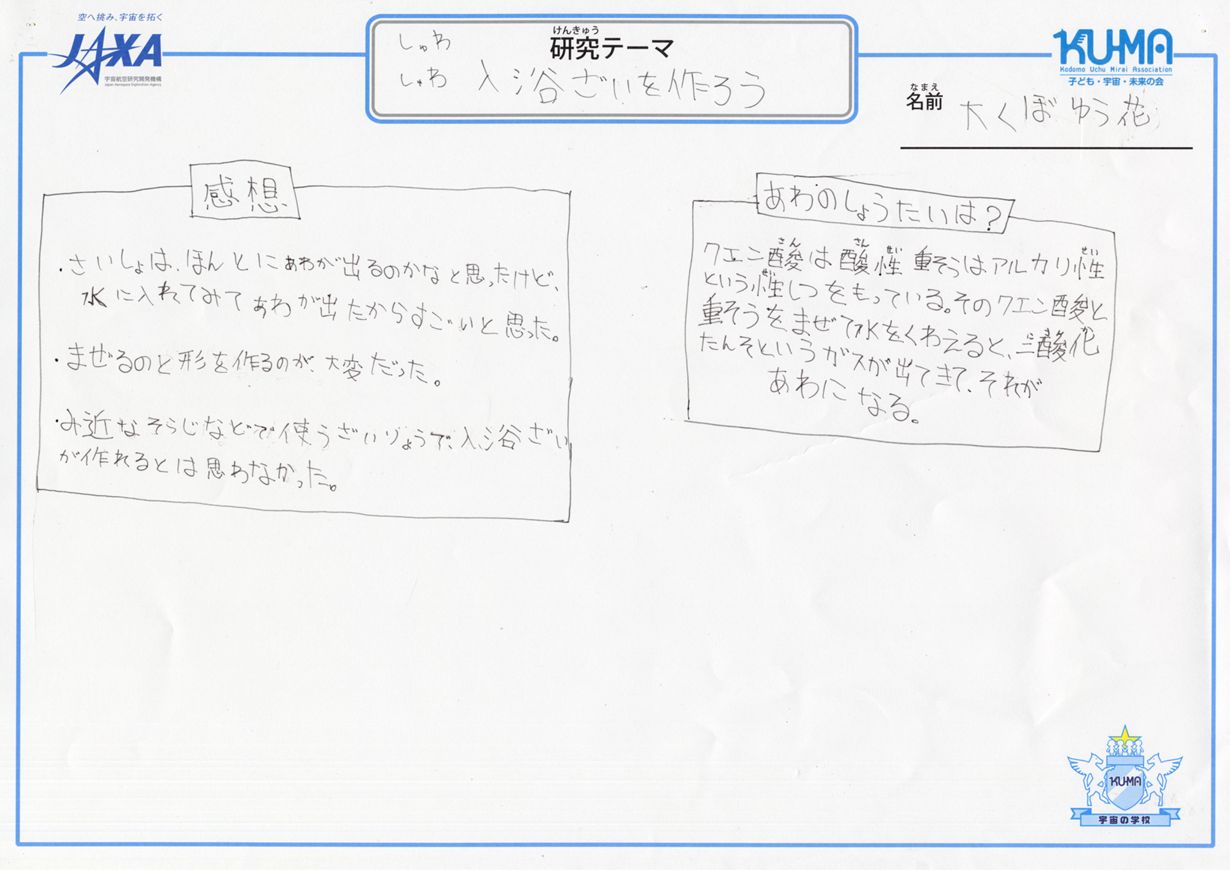 空へ挑み、宇宙を拓く
JAXA
宇宙航空研究開発機構
Japan Aerospace Exploration Agency
けんきゅう
研究テーマ
しゅわ
しゅわ 入浴ざいを作ろう
KU-MA
Kodomo Uchu Mirai Association
子ども・宇宙・未来の会
なまえ
名前 大くぼゆう花
感想
・さいしょは、ほんとにあわが出るのかなと思ったけど、
水に入れてみてあわが出たからすごいと思った。
・まぜるのと形を作るのが、大変だった。
・み近なそうじなどで使うざいりょうで、入浴ざい
が作れるとは思わなかった。
あわのしょうたいは?
さん さん せい せい
クエン酸は酸性 重そうはアルカリ性
せい
という性しつをもっている。そのクエン酸と
重そうをまぜて水をくわえると、二酸化
たんそというガスが出てきて、それが
あわになる。
KU-MA
宇宙の学校